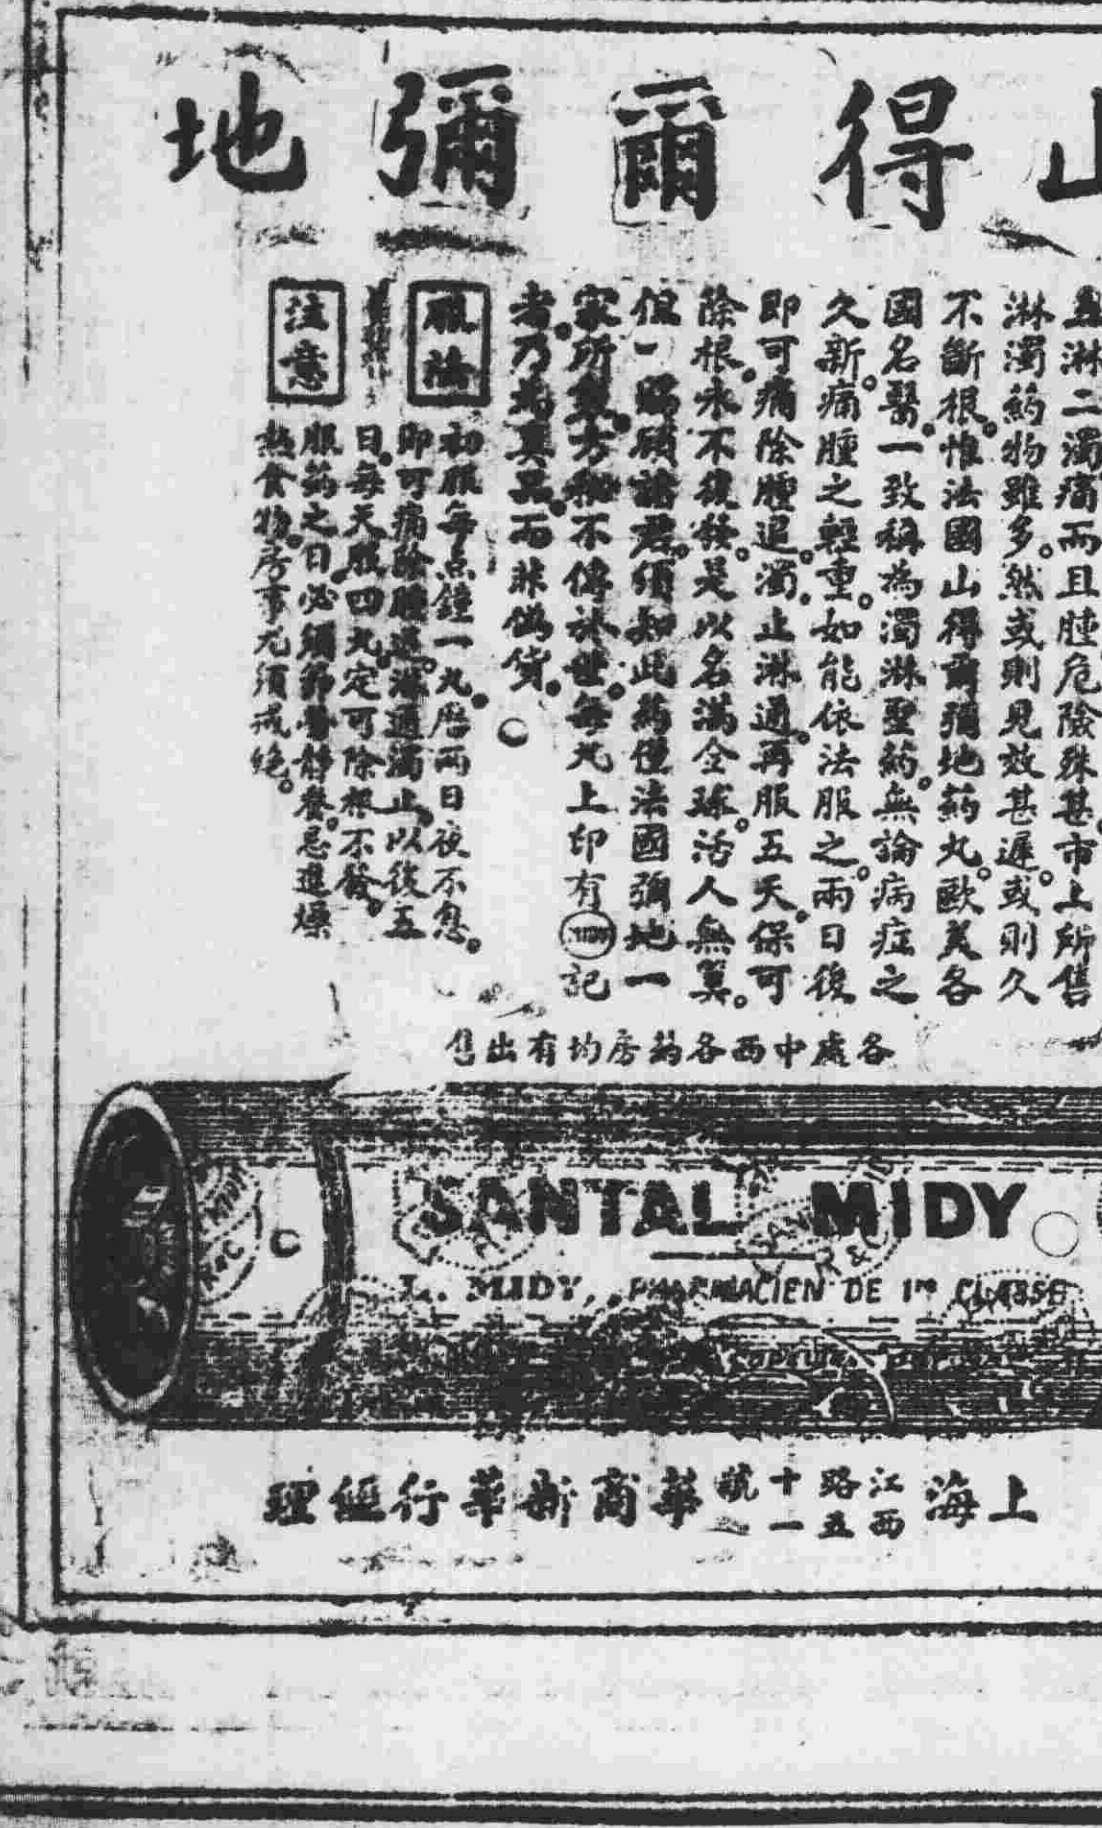 得爾彌地
淋二濁痛而且腫危險殊甚市上所售
淋濁葯物雖多。然或則見效甚遲。或則久
不斷根。惟法國山得爾彌地葯丸。歐美各
國名醫。一致稱為濁淋聖葯。無論病症之
久新。痛腫之輕重。如能依法服之。兩日後
即可痛除腫退。濁止淋通。再服五天。保可
除根。永不復發。是以名滿全球。活人無算。
但一賜顧諸君。須知此葯僅法國彌地一
家所製。方秘不傳於世。每丸上印有MIDY記
者。乃為真品。而非僞貨。
服法
初服每点鐘一丸。歷兩日夜不息。
即可痛除腫退。淋通濁止。以後五
日。每天服四丸。定可除根不發。
注意
服葯之日。必須節勞靜養。忌進燥
熱食物。房事尤須戒絕。
各處中西各葯房均有出售
SANTAL MIDY
L. MIDY, PHARMACIEN DE 1re CLASSE
上海江西路五十一號華商新華行經理